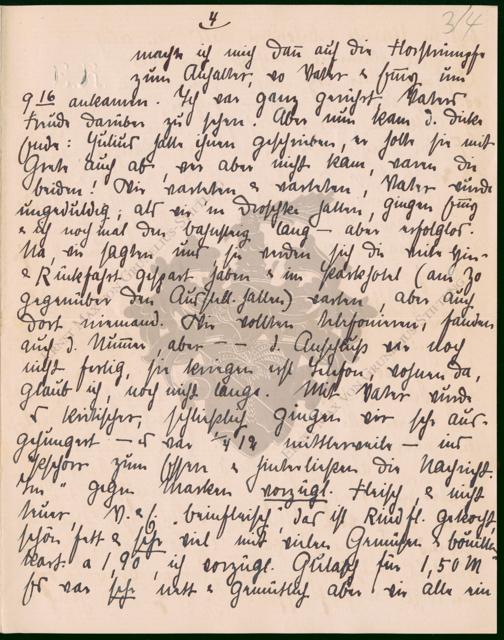 4
3/4
machte ich mich dann auf die Florstrümpfe
zum Anhalter, wo Vater & um
9 16 ankamen. Ich war ganz gerührt, Vaters
Freude darüber zu sehen. Aber nun kam d. dicke
Ende: Julius hatte ihnen geschrieben, er holte sie mit
Grete auch ab, wer aber nicht kam, waren die
beiden! Wir warteten & warteten, Vater wurde
ungeduldig; als wir ne Droschke hatten, gingen
& ich noch mal den Bahnsteig lang – aber erfolglos.
Na, wir sagten uns sie werden sich die weite Hin-
& Rückfahrt gespart haben & im Parkhotel (am Zo
gegenüber den Ausstell. hallen) warten, aber auch
dort niemand. Wir wollten telefonieren, fanden
auch d. Nummer, aber – – d. Anschluss war noch
nicht fertig, sie kriegen erst Telefon, wohnen da,
glaub ich, noch nicht lange. Mit Vater wurde
es kritischer, schließlich gingen wir sehr aus-
gehungert – es war 12 mittlerweile – ins
zum Essen & hinterließen die Nachricht.
gegen Marken vorzügl. Fleisch, & nicht
teuer, V. & „beinfleisch", das ist Rindfl. gekocht
schön fett & sehr viel mit vielen Gemüsen &
kart. a 1,90, ich vorzügl. Gulasch für 1,50 M
Es war sehr nett & gemütlich aber wir alle ein